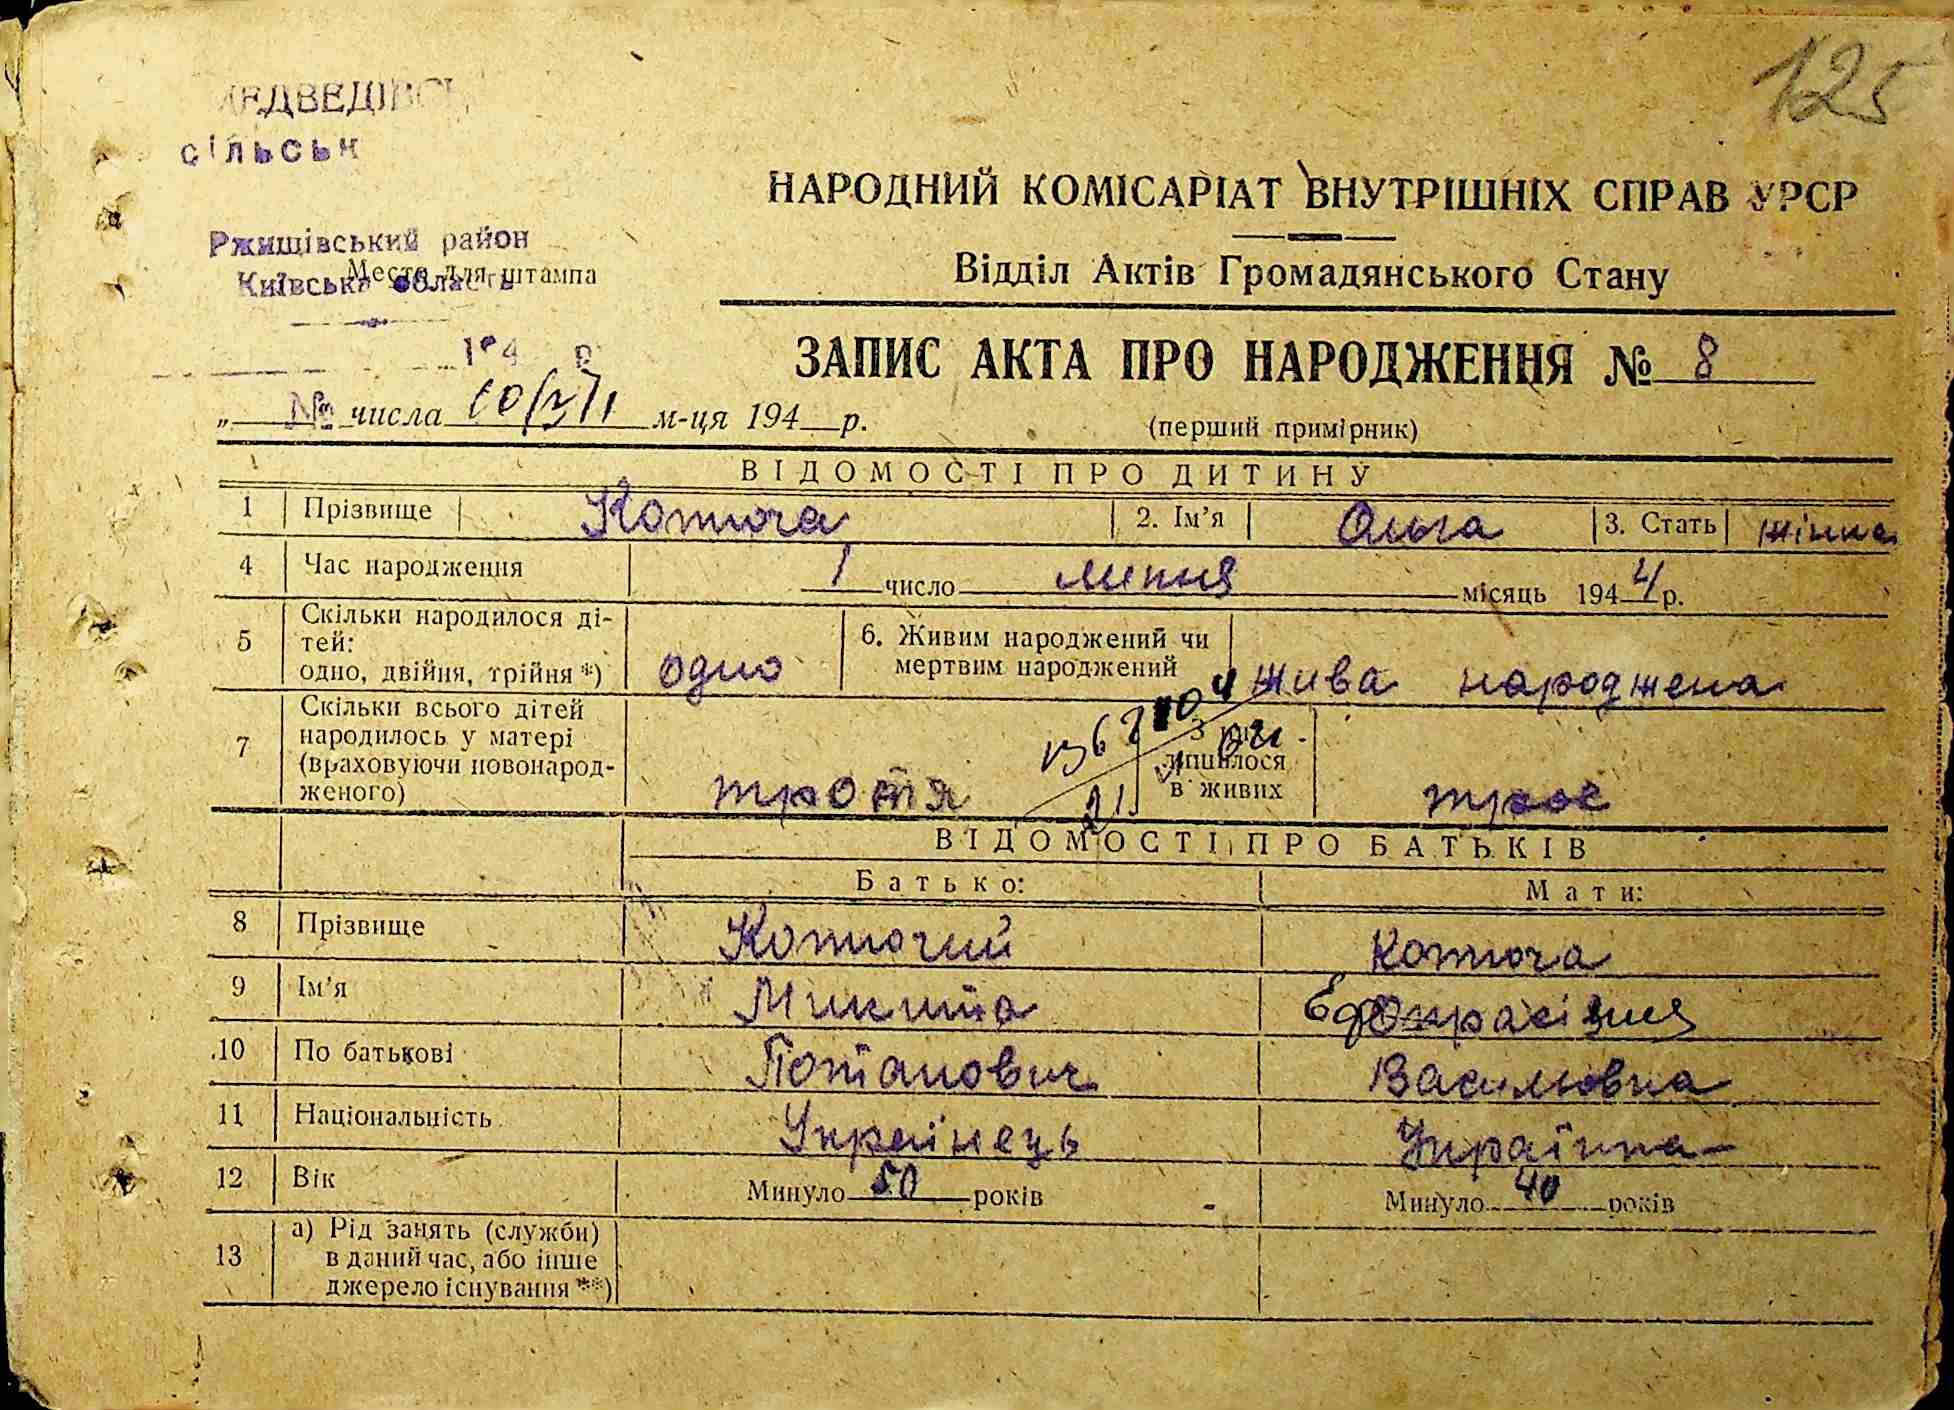 125
МЕДВЕДІВСЬ
сільськ
Ржищівський район
Київська область
Место для штампа
194 р
НАРОДНИЙ КОМІСАРІАТ ВНУТРІШНІХ СПРАВ УРСР
Відділ Актів Громадянського Стану
ЗАПИС АКТА ПРО НАРОДЖЕННЯ № 8
„ № числа 10/VII м-ця 194 р.
(перший примірник)
ВІДОМОСТІ ПРО ДИТИНУ
1 Прізвище Котюча 2. Ім'я Ольга 3. Стать жінка
4 Час народження 1 число липня місяць 1944 р.
5 Скільки народилося дітей: одно, двійня, трійня *) одно 6. Живим народжений чи мертвим народжений жива народжена
7 Скільки всього дітей народилось у матері (враховуючи новонародженого) тротя З них лишилося в живих трое
ВІДОМОСТІ ПРО БАТЬКІВ
Батько: Мати:
8 Прізвище Котючий Котюча
9 Ім'я Микита
10 По батькові Потапович Василювна
11 Національність Українець Українка
12 Вік Минуло 50 років Минуло 40 років
13 а) Рід занять (служби) в даний час, або інше джерело існування **)